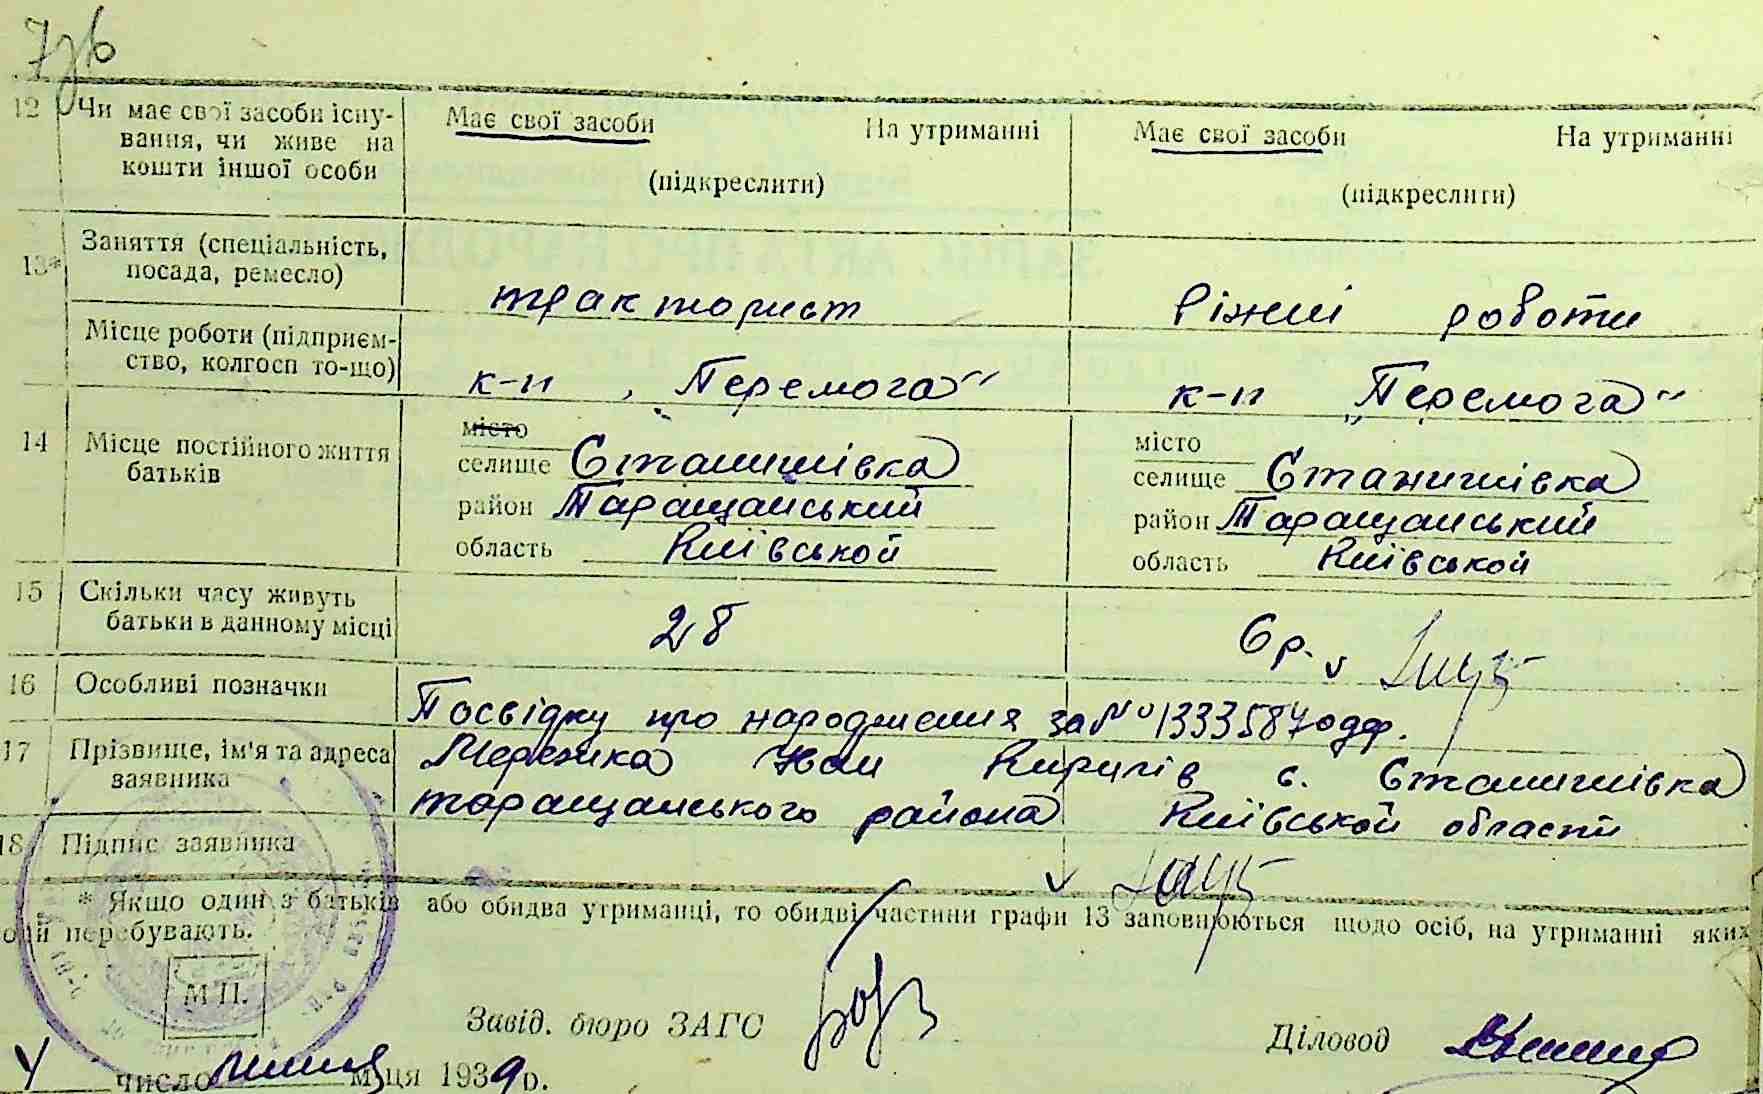 7зв
12 Чи має свої засоби існу-
вання, чи живе на
кошти іншої особи
Має свої засоби На утриманні
(підкреслити)
Має свої засоби На утриманні
(підкреслити)
13* Заняття (спеціальність,
посада, ремесло)
тракторист
ріжні роботи
Місце роботи (підприєм-
ство, колгосп то-що)
к-п „Перемога"
к-п „Перемога"
14 Місце постійного життя
батьків
місто
селище Станишівка
район Таращанський
область Київской
місто
селище Станишівка
район Таращанський
область Київской
15 Скільки часу живуть
батьки в данному місці
28
6 р.
16 Особливі позначки
Посвідку про народження за № 1333587 одер.
17 Прізвище, ім'я та адреса
заявника
Мережка Іван Кирилів с. Станишівка
таращанського района Київської области
18 Підпис заявника
* Якщо один з батьків або обидва утриманці, то обидві частини графи 13 заповнюються щодо осіб, на утриманні яких
вони перебувають.
М П.
Завід. бюро ЗАГС
Діловод
4 число липня м-ця 1939 р.